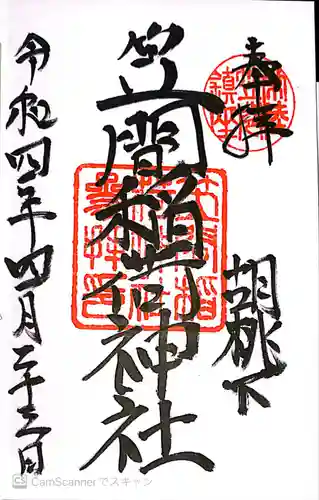 奉拝
胡桃下
笠間稲荷神社
令和四年四月二十三日
CamScannerでスキャン